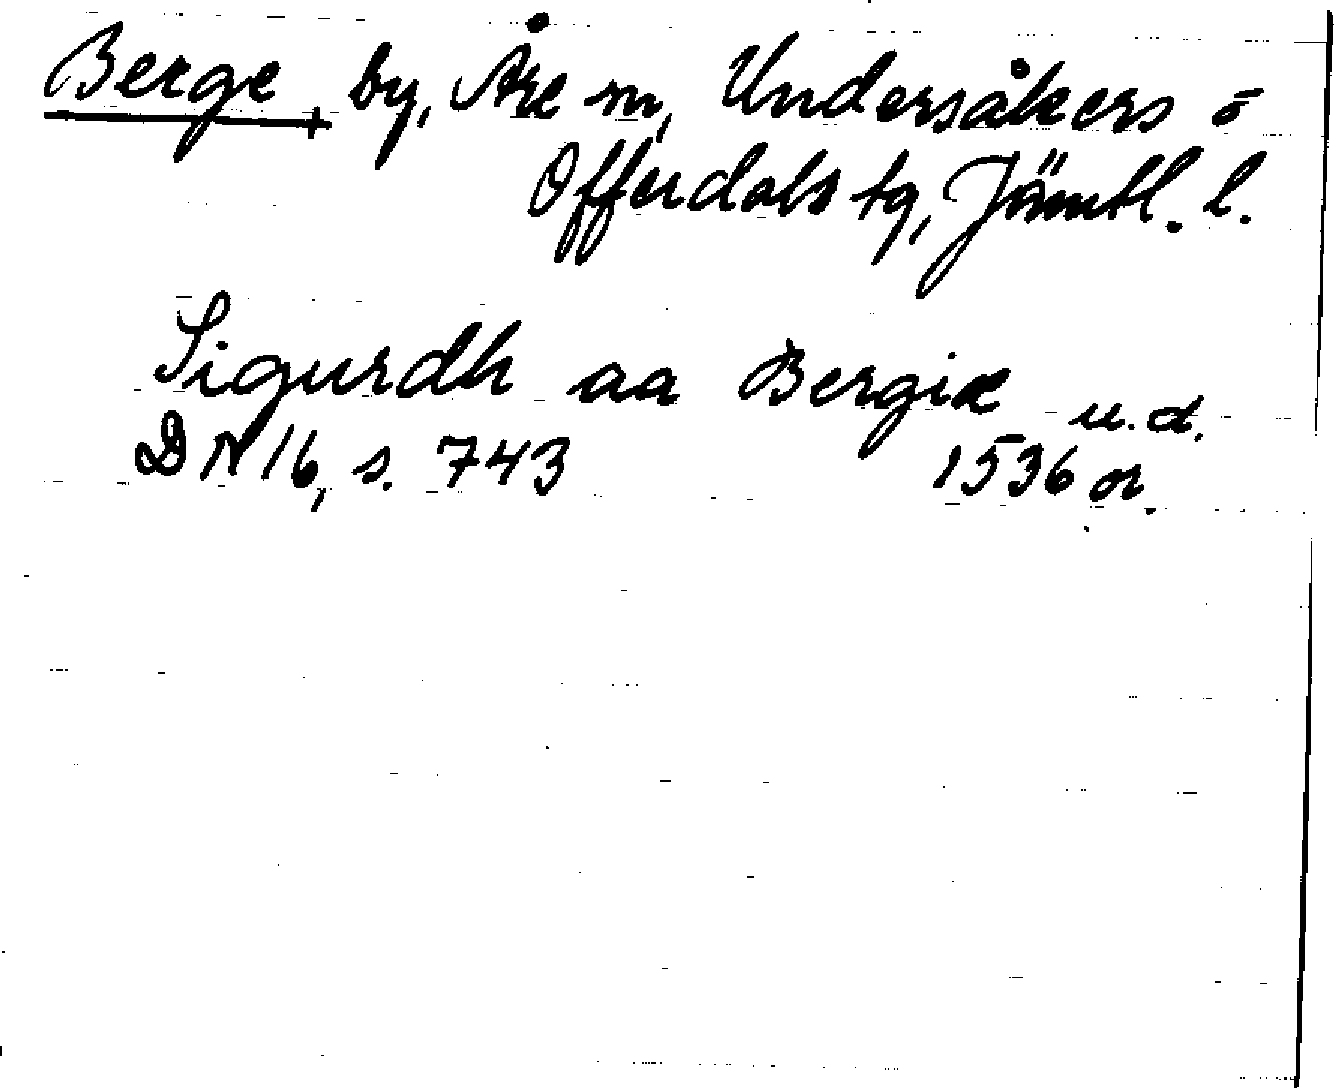 Berge by, Åre sn, Undersåkers o
Offerdals tg, Jämtl. l.
Sigurdh aa Bergiæ u.d.
DN 16, s. 743 1536 or.